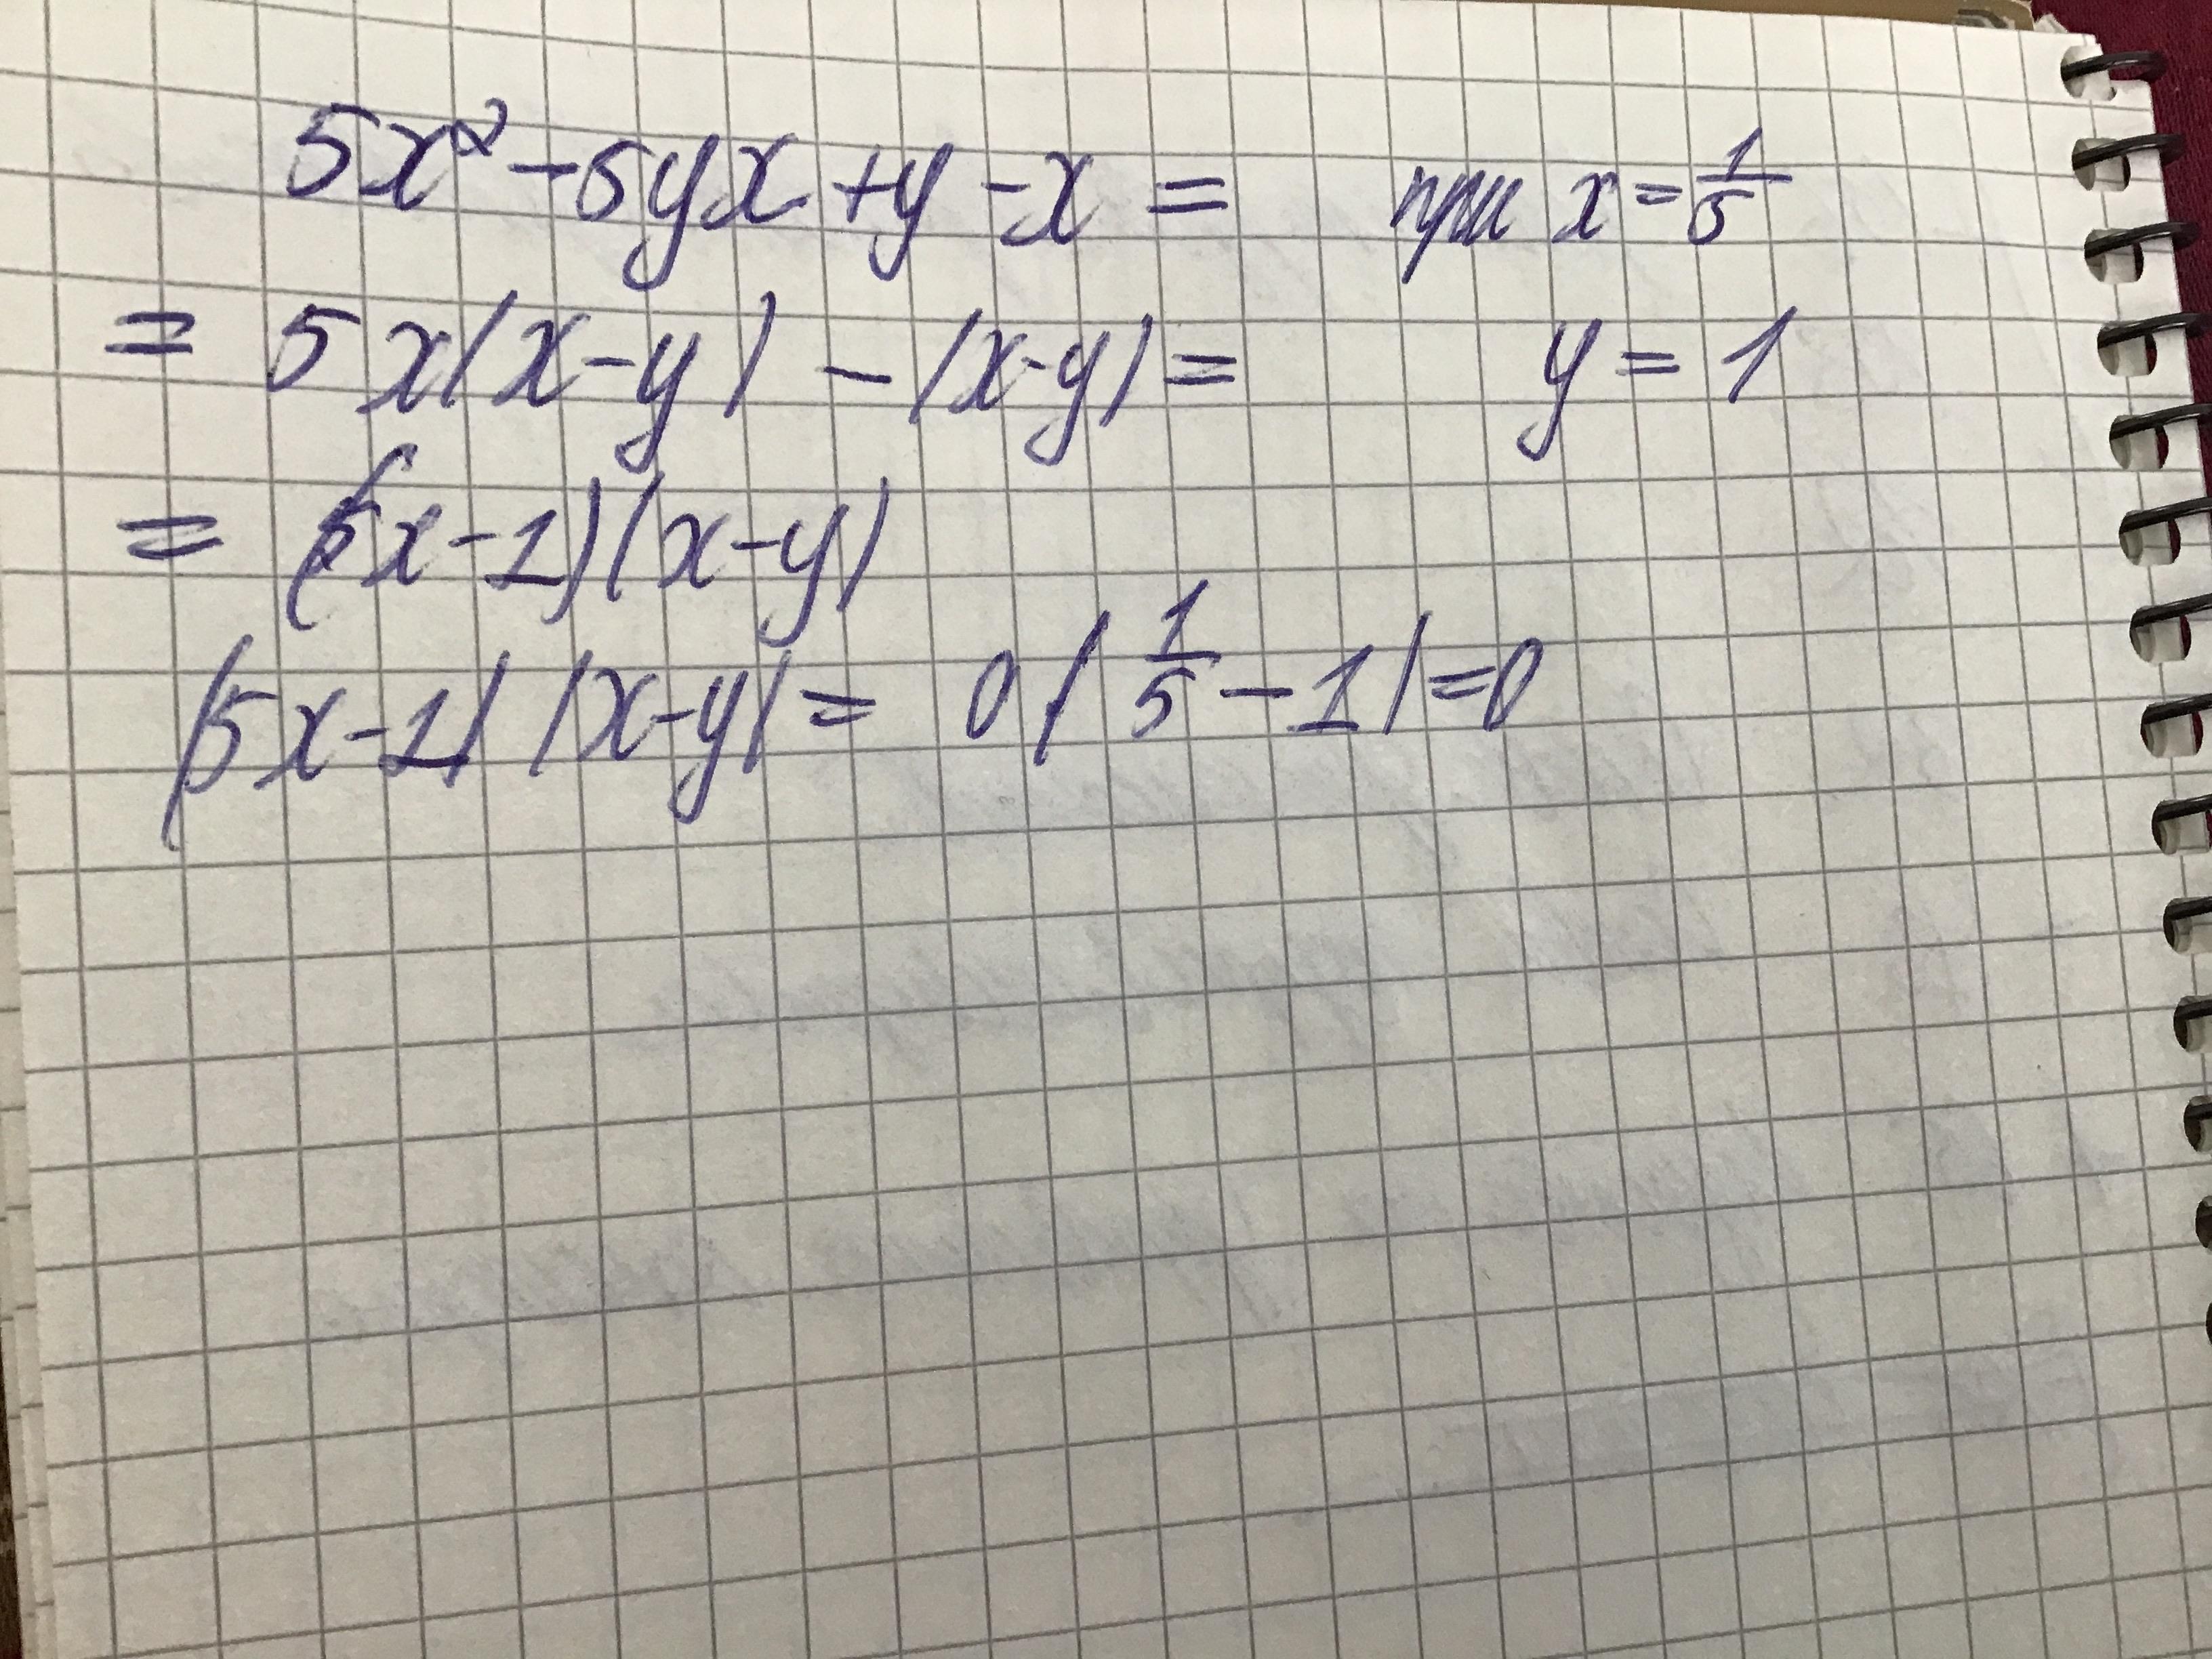 5x² - 5yx + y - x = при x = 1/5
= 5x(x-y) - (x-y) = y = 1
= (5x-1)(x-y)
(5x-1)(x-y) = 0(1/5 - 1) = 0